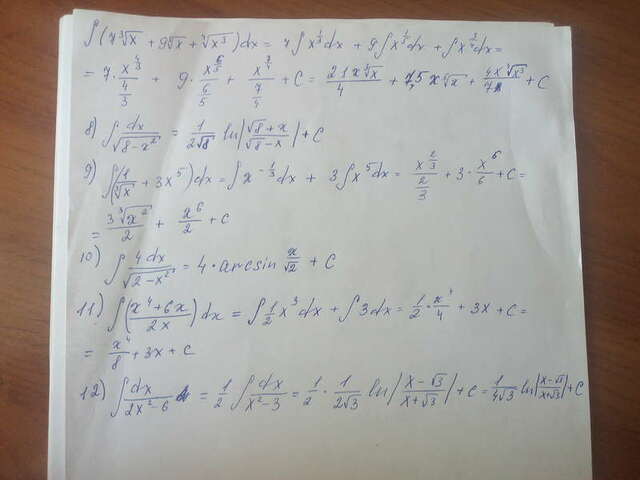 ∫(7∛x + 9⁵√x + ⁷√x³)dx = 7∫x^(1/3)dx + 9∫x^(1/5)dx + ∫x^(3/4)dx =
= 7 · x^(4/3)/(4/3) + 9 · x^(6/5)/(6/5) + + C = 21x∛x/4 + + + C
8) ∫dx/√(8-x²) = 1/(2√8) ln|(√8+x)/(√8-x)| + C
9) ∫(1/∛x + 3x⁵)dx = ∫x^(-1/3)dx + 3∫x⁵dx = x^(2/3)/(2/3) + 3 · x⁶/6 + C =
= 3∛x²/2 + x⁶/2 + C
10) ∫4dx/√(2-x²) = 4 · arcsin x/√2 + C
11) ∫((x⁴+6x)/2x)dx = ∫1/2 x³dx + ∫3dx = 1/2 · x⁴/4 + 3x + C =
= x⁴/8 + 3x + C
12) ∫dx/(2x²-6) = 1/2 ∫dx/(x²-3) = 1/2 · 1/(2√3) ln|(x-√3)/(x+√3)| + C = 1/(4√3) ln|(x-√3)/(x+√3)| + C